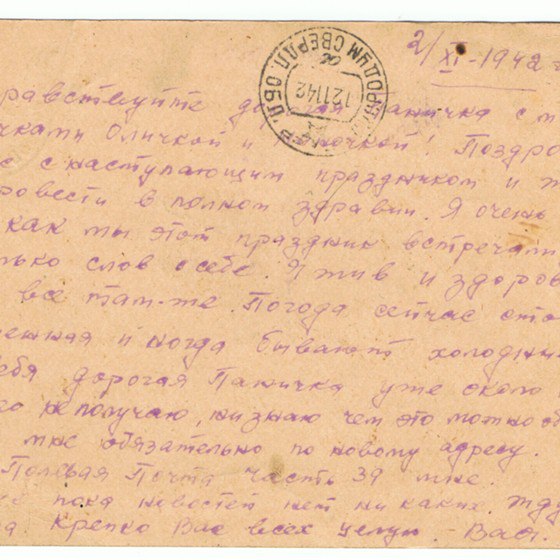 2/XI-1942 г
равствуйте до аничка с м
чками Оличкой и ночкой! Поздро
с с наступающим праздником и ж
ровести в полном здравии. Я очень
как мы этот праздник встречали
лько слов о себе. Я жив и здоров
все там-же. Погода сейчас сто
ежная и ногда бывают холодн
ебя дорогая Паничка уже около
го не получаю, ни знаю чем это можно об
мне обязательно по новому адресу.
Полевая Почта часть 39 мне.
пока новостей нет ни каких. Жду
Крепко Вас всех целую. Вас.
СВЕРДЛ. ОБЛ.
121142